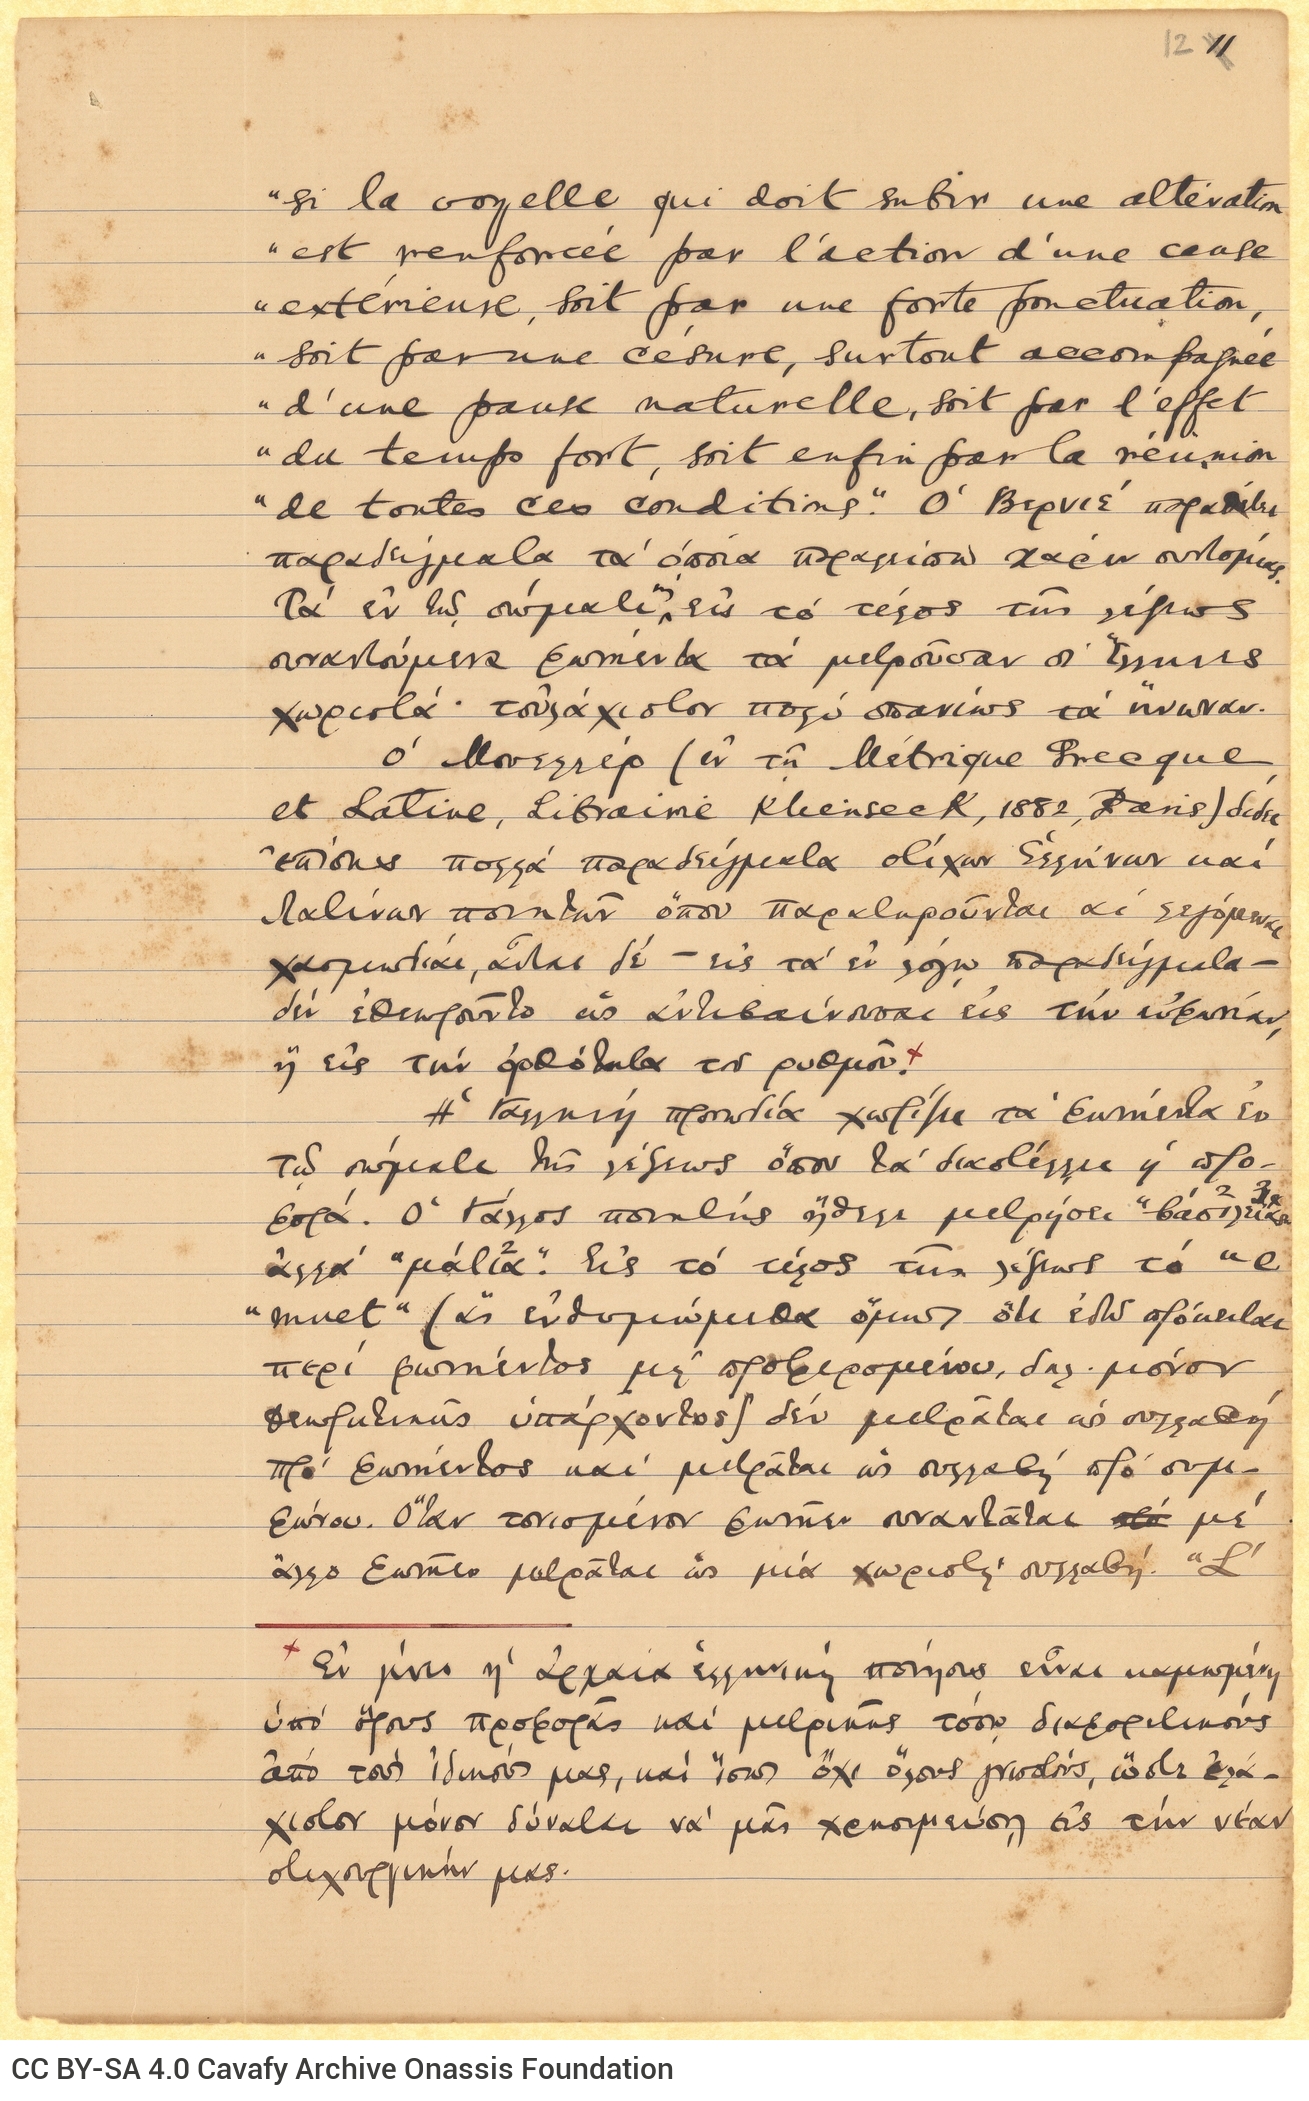 12 11
"si la voyelle qui doit subir une altération
"est renforcée par l'action d'une cause
"extérieure, soit par une forte ponctuation,
"soit par une césure, surtout accompagnée
"d'une pause naturelle, soit par l'effet
"du temps fort, soit enfin par la réunion
"de toutes ces conditions". Ὁ Βερνιέ παραθέτει
παραδείγματα τά ὁποῖα παραλείπω χάριν συντομίας.
Τά ἐν τῷ σώματι ἢ εἰς τό τέλος τῆς λέξεως
συναντούμενα φωνήεντα τά μετροῦσαν οἱ Ἕλληνες
χωριστά· τοὐλάχιστον πολύ σπανίως τά ἥνωναν.
Ὁ Μουελλέρ (ἐν τῇ Métrique Grecque
et Latine, Librairie Klienseck, 1882, Paris) δίδει
ἐπίσης πολλά παραδείγματα στίχων Ἑλλήνων καί
Λατίνων ποιητῶν ὅπου παρατηροῦνται αἱ λεγόμεναι
χασμωδίαι, αὗται δέ — εἰς τά ἐν λόγῳ παραδείγματα —
δέν ἐθεωροῦντο ὡς ἀντιβαίνουσαι εἰς τήν εὐφωνίαν,
ἤ εἰς τήν ὀρθότητα τοῦ ρυθμοῦ.+
Ἡ Γαλλική προσωδία χωρίζει τά φωνήεντα ἐν
τῷ σώματι τῆς λέξεως ὅπου τά διαστέλλει ἡ προ-
φορά. Ὁ Γάλλος ποιητής ἤθελε μετρήσει "βασιλεία"
ἀλλά "μάτια". Εἰς τό τέλος τῆς λέξεως τό "e
"muet" (ἄς ἐνθυμώμεθα ὅμως ὅτι ἐδῶ πρόκειται
περί φωνήεντος μή προφερομένου, δηλ. μόνον
θεωρητικῶς ὑπάρχοντος) δέν μετρᾶται ὡς συλλαβή
πρό φωνήεντος καί μετρᾶται ὡς συλλαβή πρό συμ-
φώνου. Ὅταν τονισμένον φωνῆεν συναντᾶται μέ
ἄλλο φωνῆεν μετρᾶται ὡς μία χωριστή συλλαβή. "L'
+ Ἐν μέρει ἡ ἀρχαία ἑλληνική ποίησις εἶναι καμωμένη
ὑπό ὅρους προφορᾶς καί μετρικῆς τόσῳ διαφορετικούς
ἀπό τούς ἰδικούς μας, καί ἴσως ὄχι ὅλους γνωστούς, ὥστε ἐλά-
χιστον μόνον δύναται νά μᾶς χρησιμεύσῃ εἰς τήν νέαν
στιχουργικήν μας.
CC BY-SA 4.0 Cavafy Archive Onassis Foundation